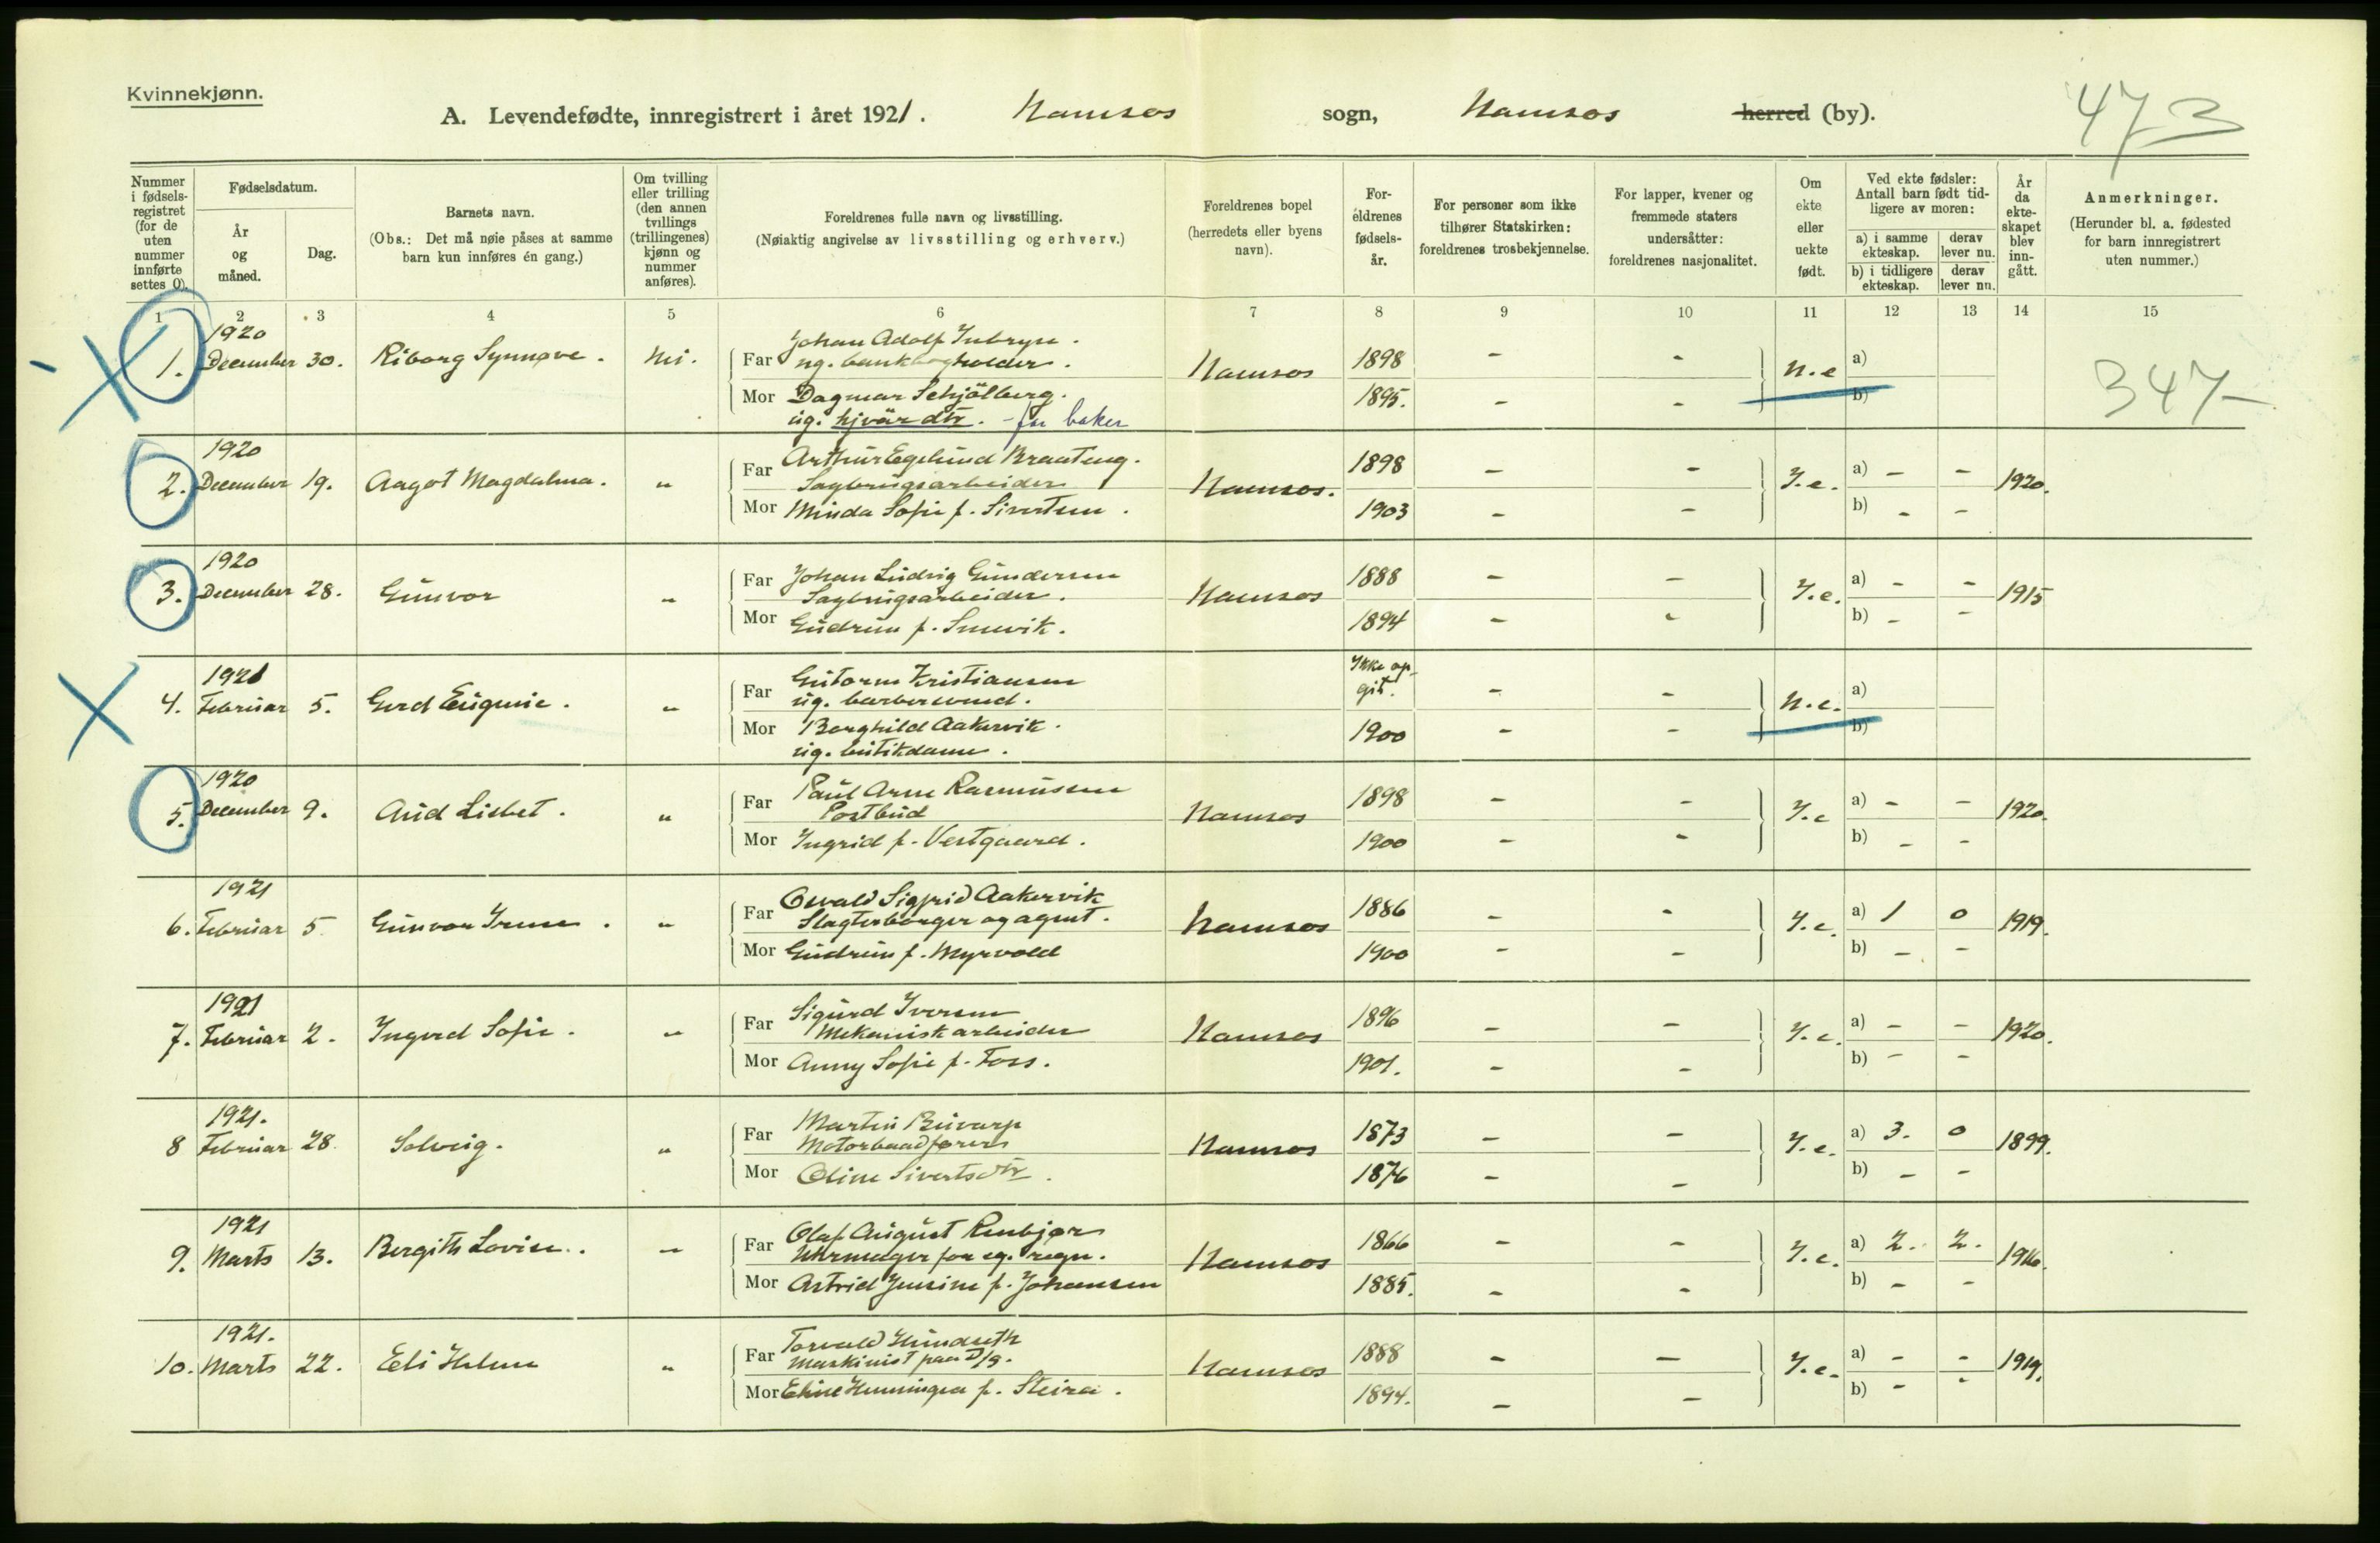 Kvinnekjønn.
A. Levendefødte, innregistrert i året 1921. Namsos sogn, Namsos herred (by).
473
Nummer i fødselsregistret (for de uten nummer innførte settes 0).
Fødselsdatum.
År og måned.
Dag.
Barnets navn.
(Obs.: Det må nøie påses at samme barn kun innføres én gang.)
Om tvilling eller trilling (den annen tvillings (trillingenes) kjønn og nummer anføres).
Foreldrenes fulle navn og livsstilling.
(Nøiaktig angivelse av livsstilling og erhverv.)
Foreldrenes bopel (herredets eller byens navn).
Foreldrenes fødselsår.
For personer som ikke tilhører Statskirken: foreldrenes trosbekjennelse.
For lapper, kvener og fremmede staters undersåtter: foreldrenes nasjonalitet.
Om ekte eller uekte født.
Ved ekte fødsler: Antall barn født tidligere av moren:
a) i samme ekteskap.
derav lever nu.
b) i tidligere ekteskap.
derav lever nu.
År da ekteskapet blev inngått.
Anmerkninger.
(Herunder bl. a. fødested for barn innregistrert uten nummer.)
1 2 3 4 5 6 7 8 9 10 11 12 13 14 15
1. 1920 December 30. Riborg Synnøve. Nei.
Far Johan Adolf
ug. bankbogholder.
Namsos 1898 - - N.e a)
Mor Dagmar Schjölberg.
ug. hjvär dtr. - far baker
1895. - - b)
347
2. 1920 December 19. Aagot Magdalena. "
Far Arthur Egelund Braateng.
Sagbrugsarbeider
Namsos. 1898 - - Y.e. a) - - 1920.
Mor Minda Sofie f. Sivertsen.
1903 - - b) - -
3. 1920 December 28. Gunvor "
Far Johan Ludvig Gundersen
Sagbrugsarbeider.
Namsos 1888 - - Y.e. a) - - 1915
Mor Gudrun f. Smevik.
1894 - - b) - -
4. 1921 Februar 5. Gerd Eugenie. "
Far Gutorm Kristiansen
ug. barbersvend.
Ikke opgit. - - N.e. a)
Mor Borghild Aakervik.
ug. butikdame.
1900 - - b)
5. 1920 December 9. Aud Lisbet. "
Far Paul Arne Rasmussen
Postbud
Namsos 1898 - - Y.e a) - - 1920.
Mor Ingrid f. Vestgaard.
1900 - - b) - -
6. 1921 Februar 5 Gunvor Irene. "
Far Osvald Sigfrid Aakervik
Slagterborger og agent.
Namsos 1886 - - Y.e. a) 1 0 1919.
Mor Gudrun f. Myrvold
1900 - - b) - -
7. 1921 Februar 2. Ingerd Sofie. "
Far Sigurd Iversen
Mekanisk arbeider
Namsos 1896 - - Y.e. a) - - 1920.
Mor Anny Sofie f. Foss.
1901. - - b) - -
8 1921. Februar 28. Solveig. "
Far Martin
Motorbaadfører
Namsos 1873 - - Y.e. a) 3. 0 1899.
Mor Oline Sivertsdtr.
1876 - - b) - -
9. 1921 Marts 13. Bergith Lovise. "
Far Olaf August Renbjør
Uhrmager for eg. regn.
Namsos 1866 - - Y.e. a) 2. 2. 1916.
Mor Astrid Jensine f. Johansen
1885. - - b) - -
10. 1921. Marts 22. Eli Helene "
Far Torvald Hundseth
Maskinist paa D/S.
Namsos 1888 - - Y.e. a) - - 1919.
Mor Eline f. Steira.
1894. - - b) - -